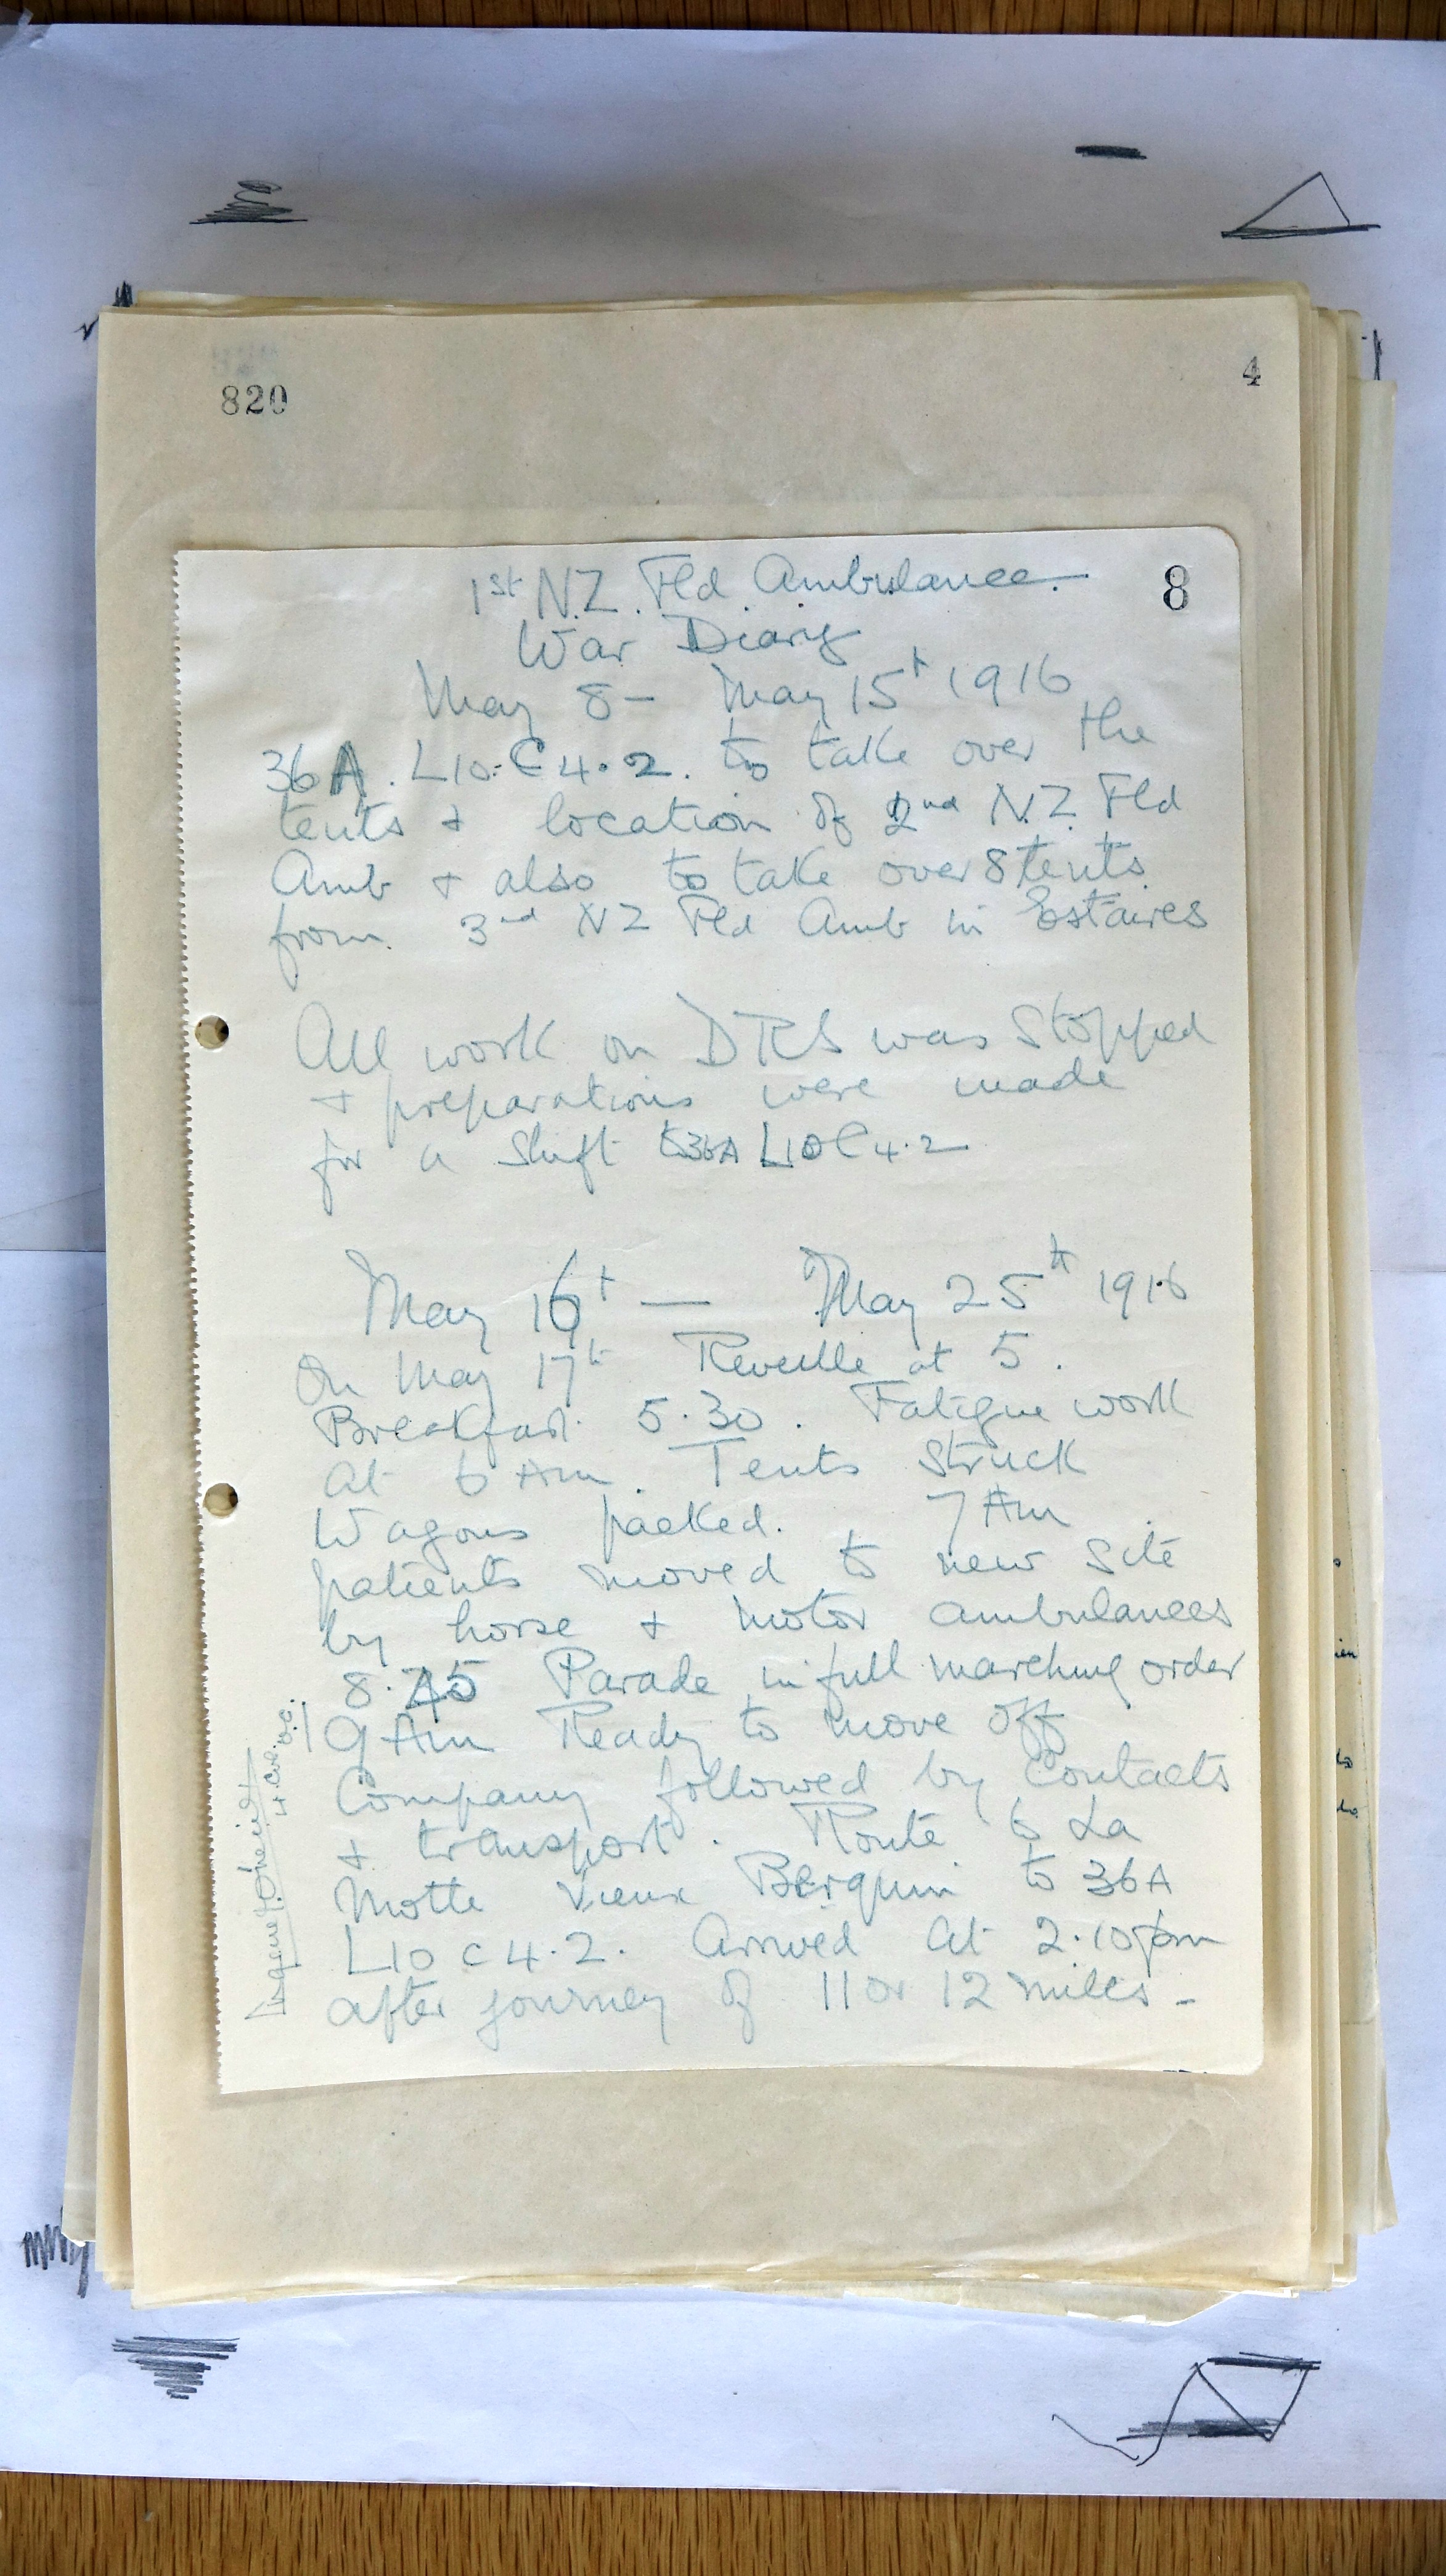 820
4
8
1st N.Z. Fld Ambulance.
War Diary
May 8 - May 15t 1916
36A. L10.C4.2. to take over the
tents + location of 2nd N.Z. Fld
Amb + also to take over 8 tents
from 3rd NZ Fld Amb in Estaires
All work on DRS was stopped
+ preparations were made
for a shift to 36A L10C4.2
May 16t — May 25t 1916
On May 17th Reveille at 5.
Breakfast 5.30. Fatigue work
at 6 Am. Tents struck
Wagons packed. 7 Am
patients moved to new site
by horse + motor ambulances
8.45 Parade in full marching order
9 Am Ready to move off
Company followed by contacts
+ transport. Route to La
Motte Vieux Berquin to 36A
L10 C4.2. Arrived at 2.10 pm
after journey of 11 or 12 miles -